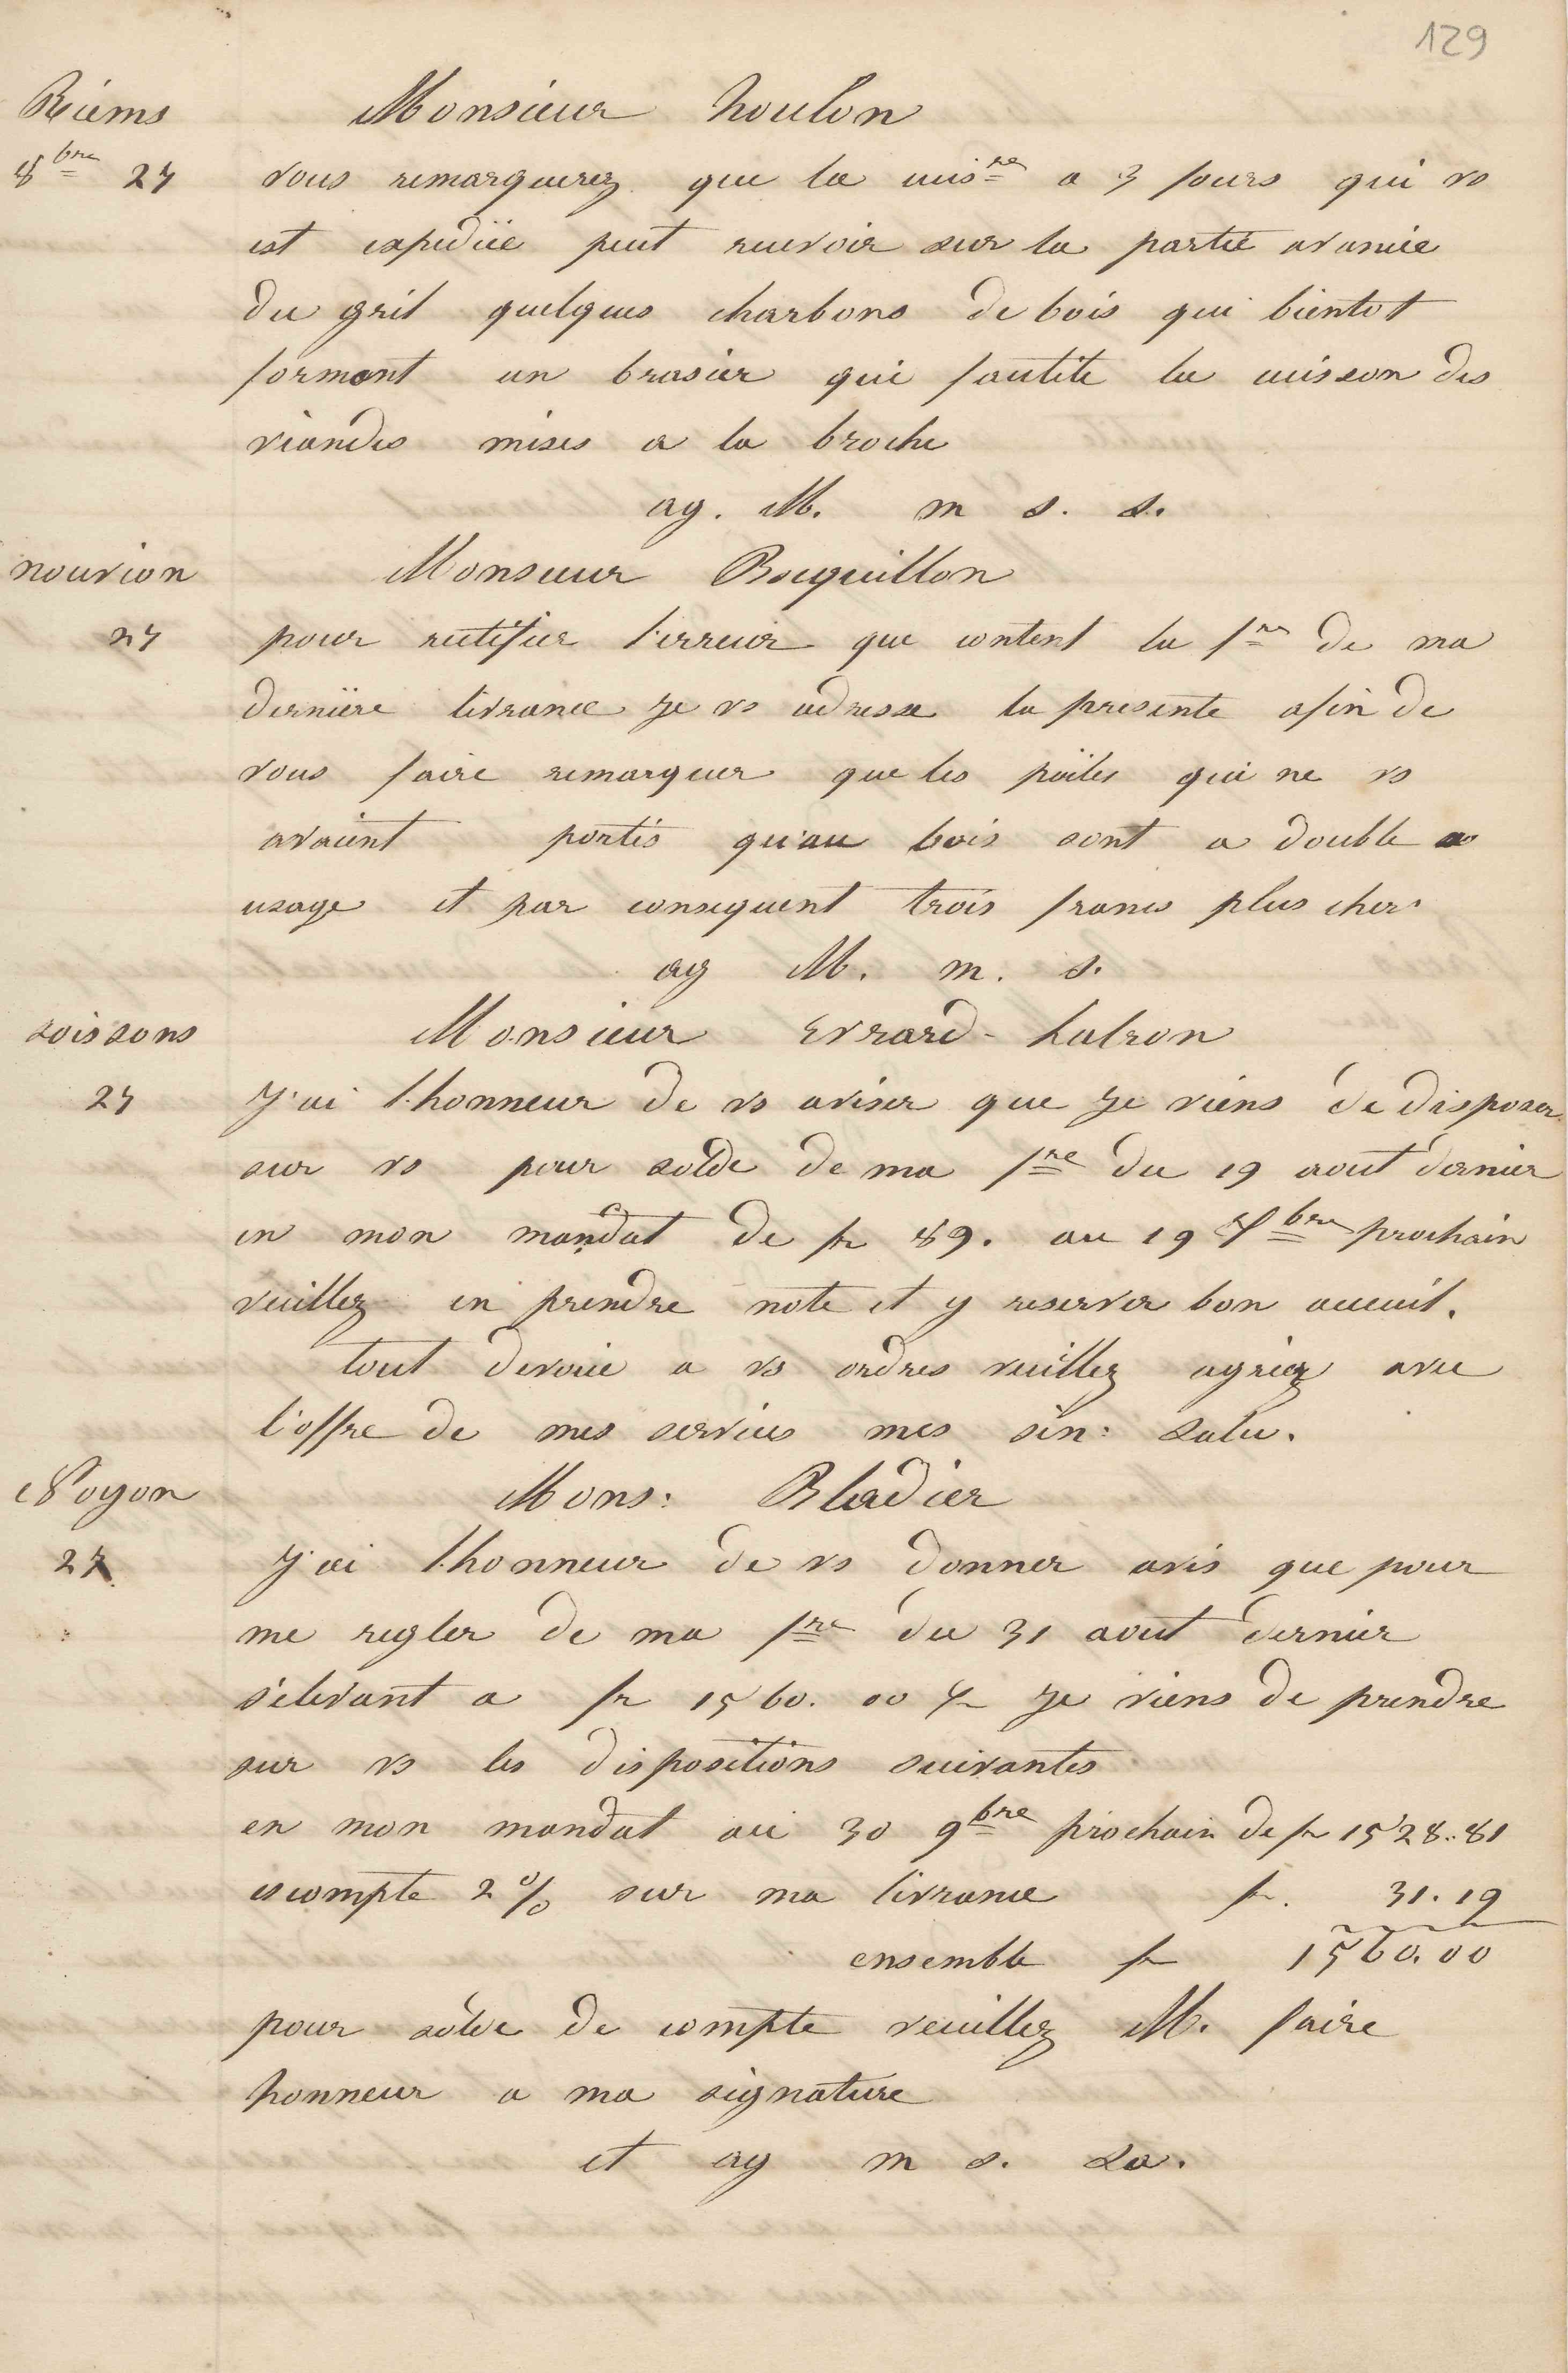 129
Reims Monsieur Houlon
8bre 27 vous remarquerez que la cuisre a 3 fours qui vs
est expediée peut recevoir sur la partie avancée
du gril quelques charbons de bois qui bientot
forment un brasier qui facilite la cuisson des
viandes mises a la broche
ag. M. m s. s.
nouvion Monsieur Bocquillon
27 pour rectifier l'erreur que contient la fre de ma
dernière livrance je vs adresse la presente afin de
vous faire remarquer que les poëles qui ne vs
avaient portés qu'au bois sont a double
usage et par consequent trois francs plus cher
ag M. m. s.
soissons Monsieur Evrard-
27 J'ai l'honneur de vs aviser que je viens de disposer
sur vs pour solde de ma fre du 19 aout dernier
en mon mandat de fr 89. au 19 bre prochain
veuillez en prendre note et y reserver bon accueil.
tout devoué a vs ordres veuillez agréez avec
l'offre de mes services mes sin: salu.
Noyon Mons: Bladier
27 J'ai l'honneur de vs donner avis que pour
me regler de ma fre du 31 aout dernier
s'elevant a fr 1560. 00 je viens de prendre
sur vs les dispositions suivantes
en mon mandat au 30 9bre prochain de fr 1528.81
escompte 2% sur ma livrance fr. 31.19
ensemble fr 1560.00
pour solde de compte veuillez M. faire
honneur a ma signature
et ag m s. sa.